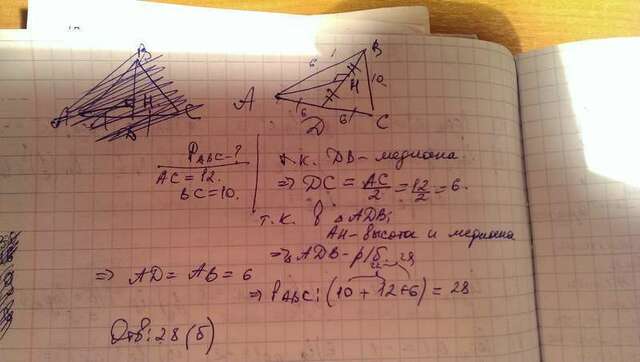 B
6
10
H
A
6
6
D
C
P ABC - ?
AC = 12.
BC = 10.
т.к. DB - медиана
=> DC = AC/2 = 12/2 = 6.
т.к. в △ADB;
AH - высота и медиана
=> ADB - р/б
=> AD = AB = 6
=> P ABC: (10 + 12 + 6) = 28
Отв: 28 (б)